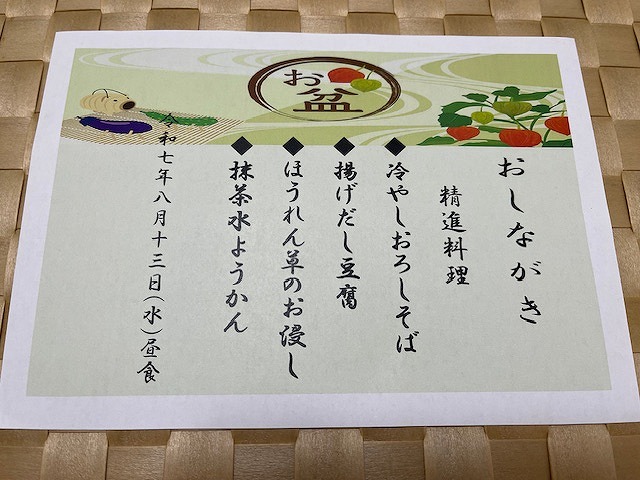 お盆
おしながき
精進料理
◆冷やしおろしそば
◆揚げだし豆腐
◆ほうれん草のお浸し
◆抹茶水ようかん
令和七年八月十三日(水)昼食